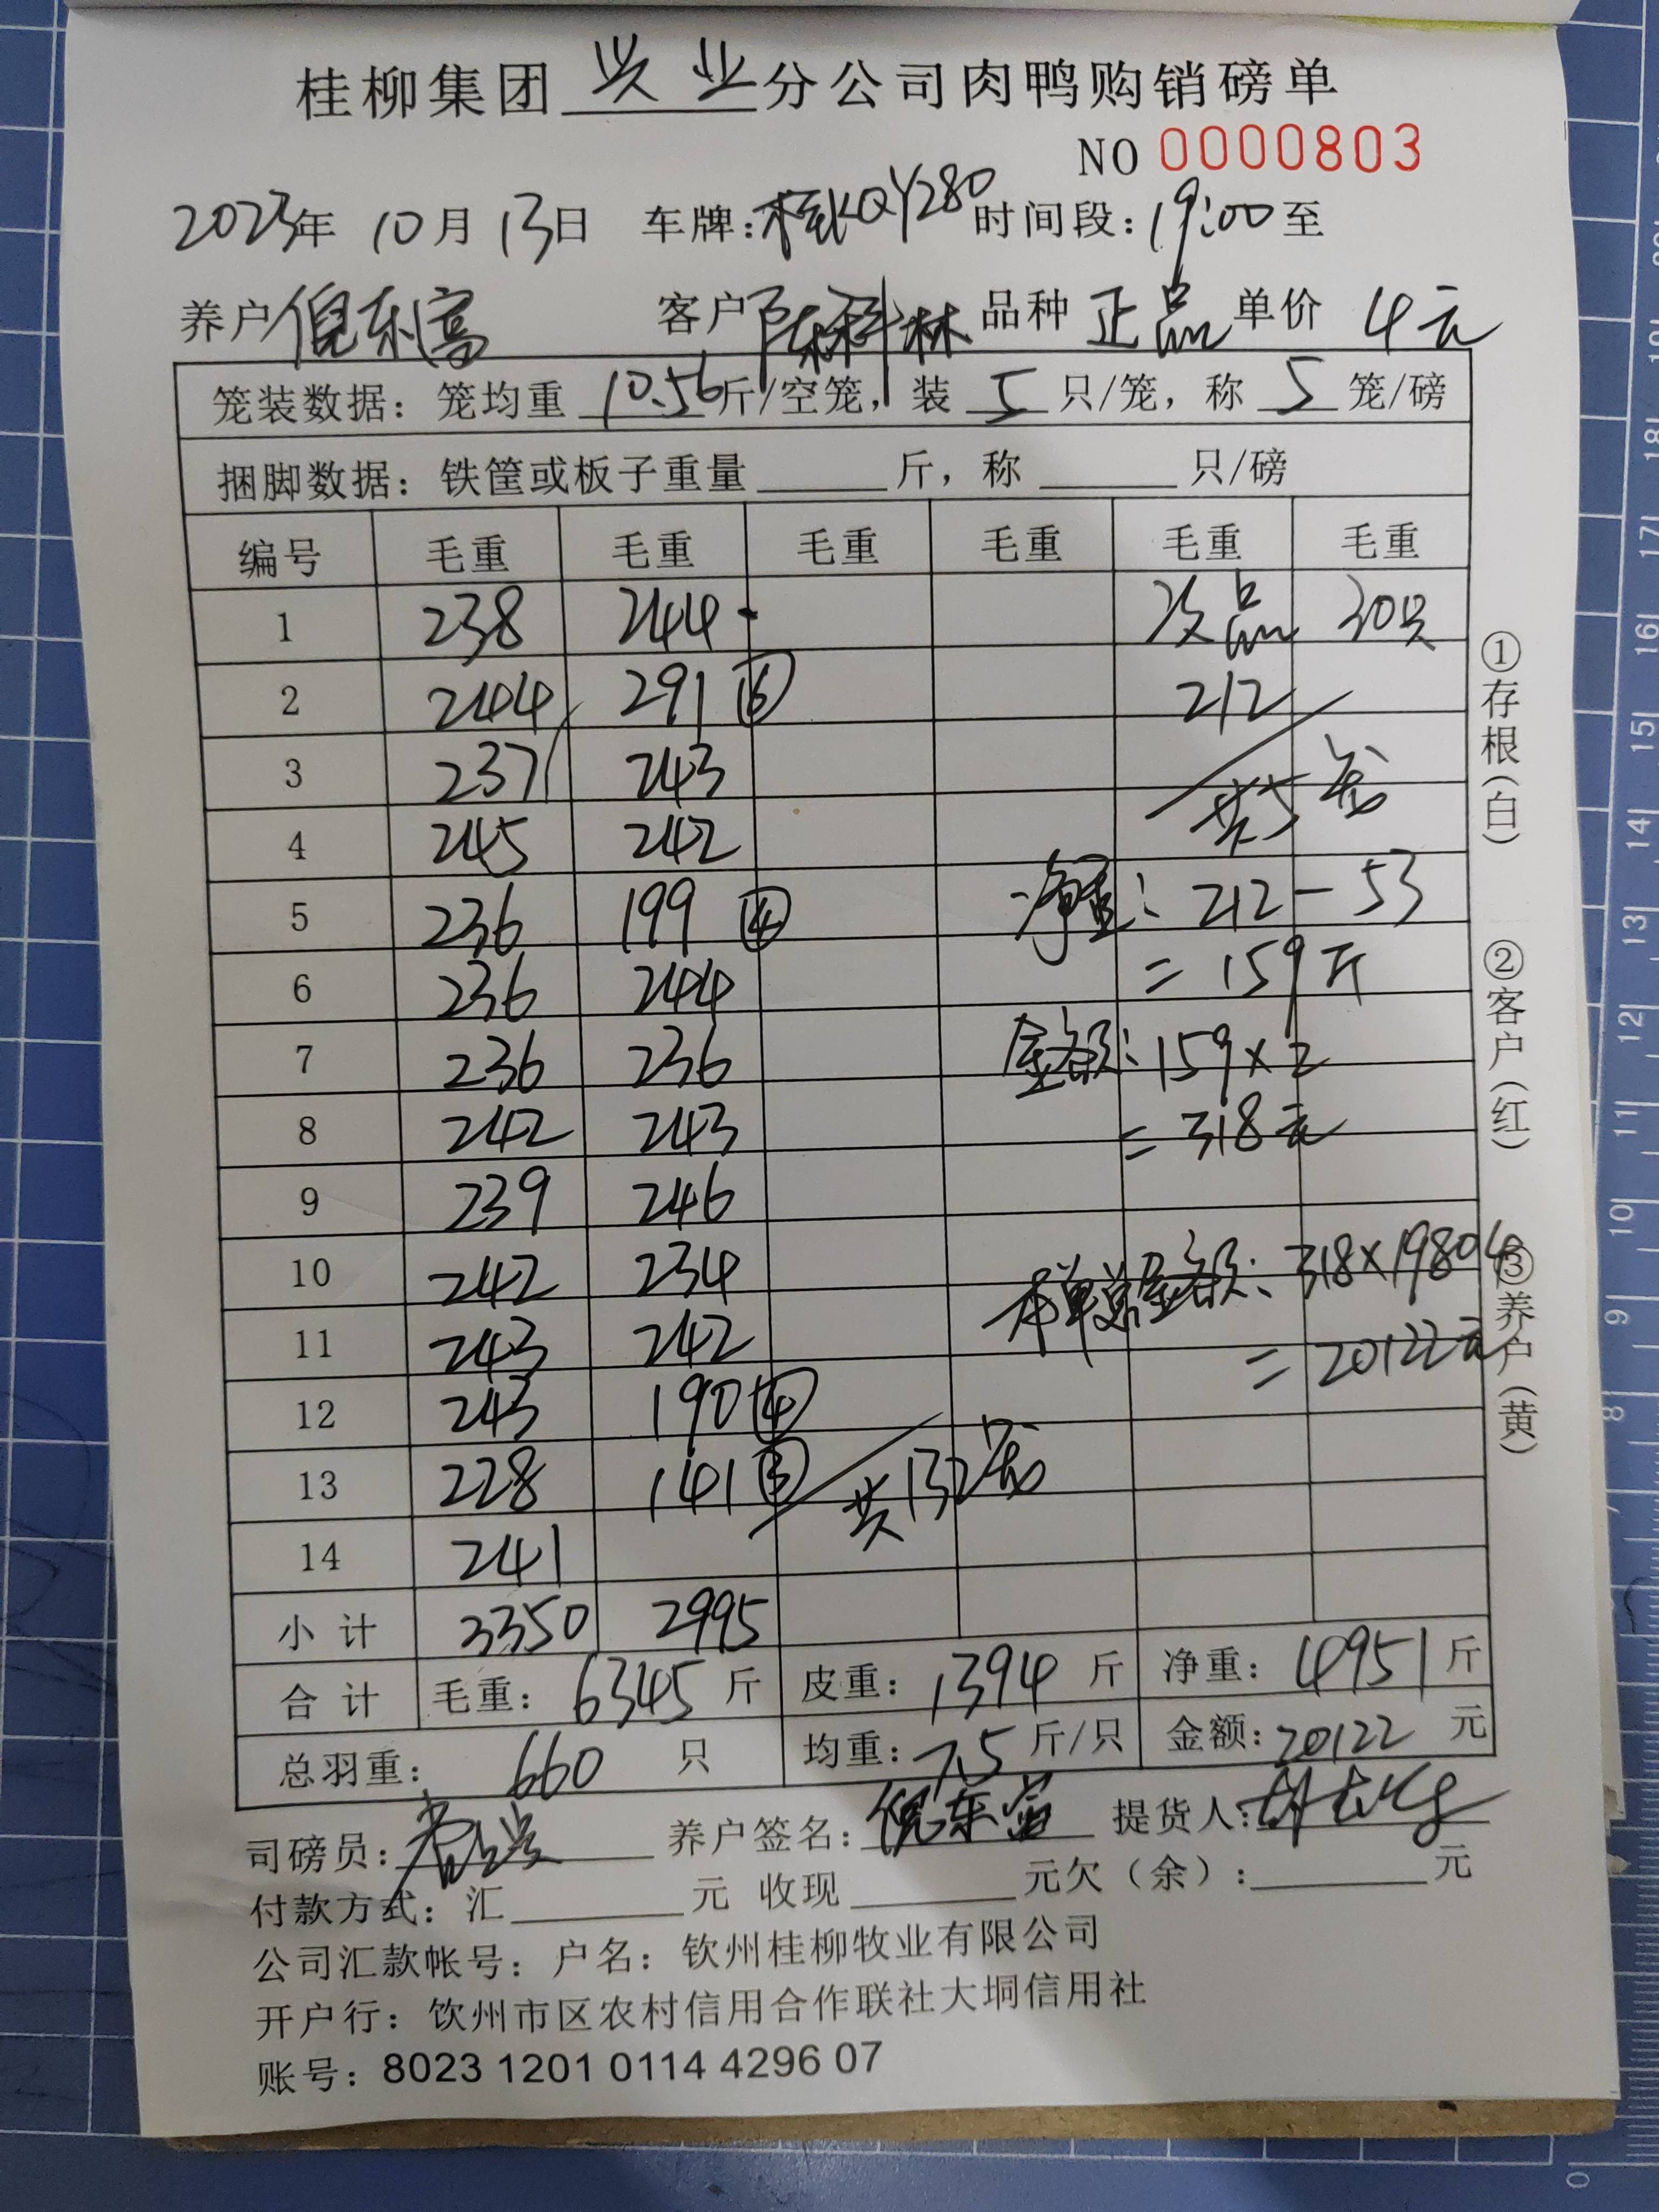 桂柳集团兴业分公司肉鸭购销磅单
NO 0000803
2023年 10月 13日 车牌:桂KQY280 时间段:19:00至
养户 倪东富 客户 陈科林 品种 正品 单价 4元
笼装数据:笼均重 10.56 斤/空笼,装 5 只/笼,称 5 笼/磅
捆脚数据:铁筐或板子重量 斤,称 只/磅
编号 毛重 毛重 毛重 毛重 毛重 毛重
1 238 244 次品 30只
2 244 291 ⑥ 212
3 237 243 共5笼
4 245 242
5 236 199 ④ 净重:212-53
6 236 244 =159斤
7 236 236 金额:159×2
8 242 243 =318元
9 239 246
10 242 234 本单总金额:318×19804
11 243 242 =20122元
12 243 190 ④
13 228 141 ③ 共132笼
14 241
小计 3350 2995
合计 毛重:6345斤 皮重:1394斤 净重:4951斤
总羽重:660只 均重:7.5斤/只 金额:20122元
司磅员: 养户签名:倪东富 提货人:
付款方式:汇 元 收现 元欠(余): 元
公司汇款帐号:户名:钦州桂柳牧业有限公司
开户行:钦州市区农村信用合作联社大垌信用社
账号:8023 1201 0114 4296 07
①存根(白)
②客户(红)
③养户(黄)